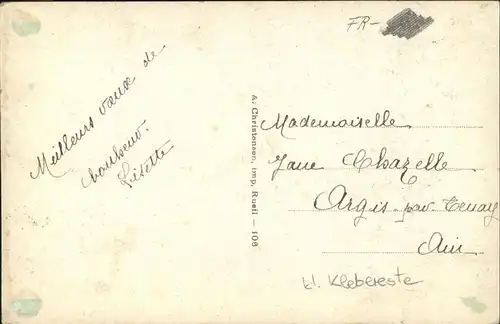 FR-
Meilleurs vœux de
bonheur.
Lisette
A. Christensen, imp. Rueil — 106
Mademoiselle
Jane Chazelle
Argis par Tenay
Ain
kl. Klebereste